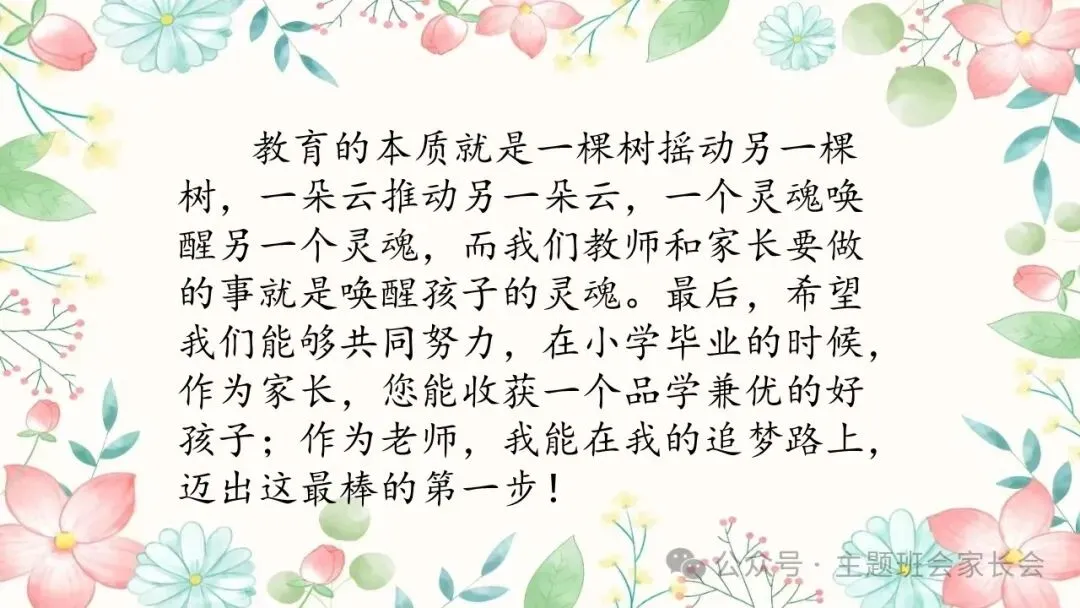 教育的本质就是一棵树摇动另一棵
树，一朵云推动另一朵云，一个灵魂唤
醒另一个灵魂，而我们教师和家长要做
的事就是唤醒孩子的灵魂。最后，希望
我们能够共同努力，在小学毕业的时候，
作为家长，您能收获一个品学兼优的好
孩子；作为老师，我能在我的追梦路上，
迈出这最棒的第一步！
公众号·主题班会家长会